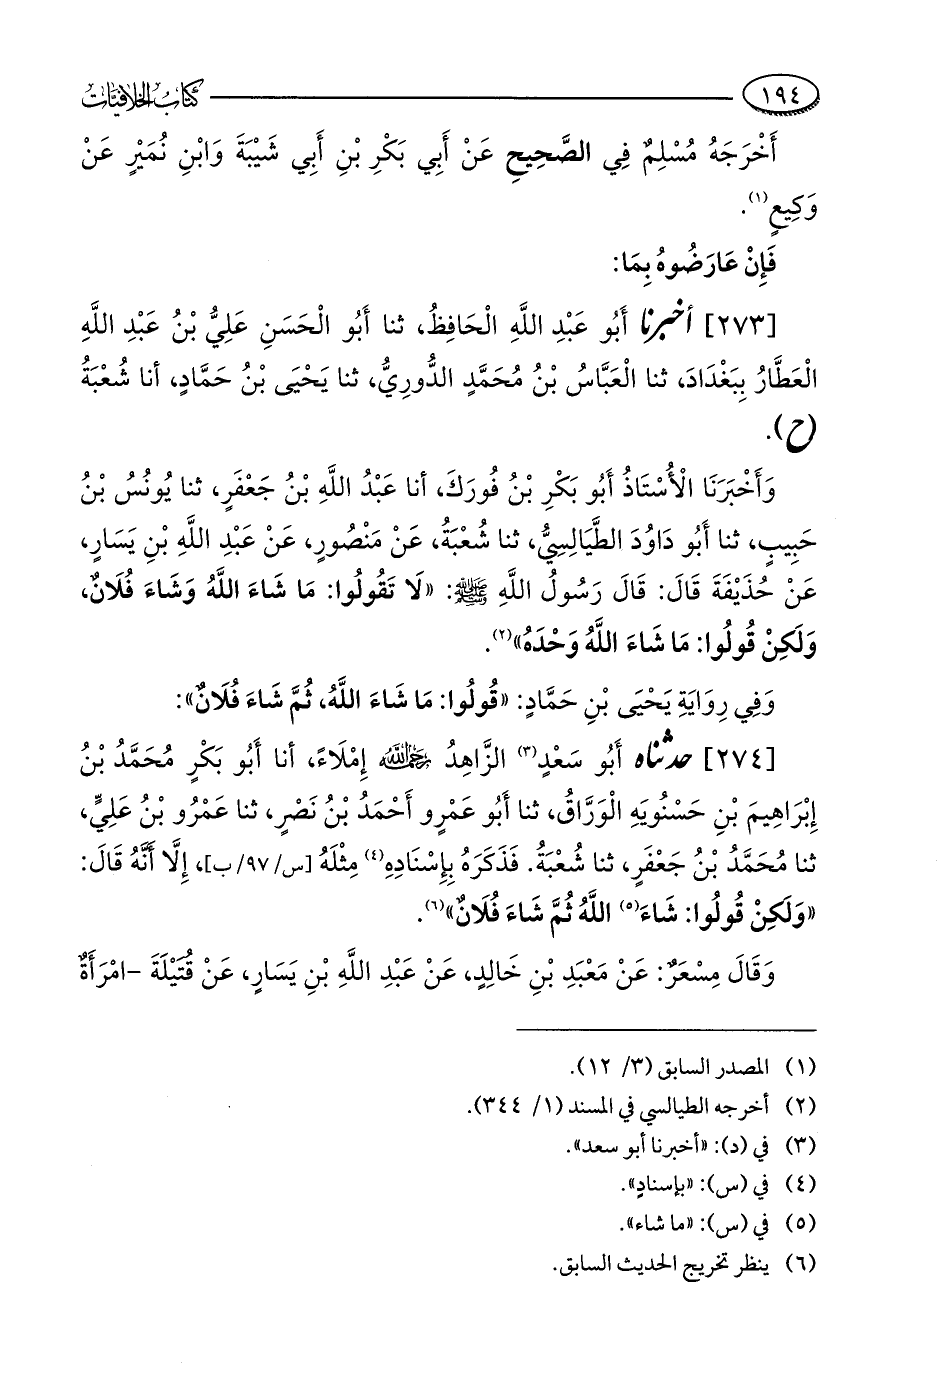 ١٩٤
كتاب الخلافيات
أَخْرَجَهُ مُسْلِمٌ فِي الصَّحِيحِ عَنْ أَبِي بَكْرِ بْنِ أَبِي شَيْبَةَ وَابْنِ نُمَيْرٍ عَنْ
وَكِيعٍ(١).
فَإِنْ عَارَضُوهُ بِمَا:
[٢٧٣] أخبرنا أَبُو عَبْدِ اللَّهِ الْحَافِظُ، ثنا أَبُو الْحَسَنِ عَلِيُّ بْنُ عَبْدِ اللَّهِ
الْعَطَّارُ بِبَغْدَادَ، ثنا الْعَبَّاسُ بْنُ مُحَمَّدٍ الدُّورِيُّ، ثنا يَحْيَى بْنُ حَمَّادٍ، أنا شُعْبَةُ
(ح).
وَأَخْبَرَنَا الْأُسْتَاذُ أَبُو بَكْرِ بْنُ فُورَكَ، أنا عَبْدُ اللَّهِ بْنُ جَعْفَرٍ، ثنا يُونُسُ بْنُ
حَبِيبٍ، ثنا أَبُو دَاوُدَ الطَّيَالِسِيُّ، ثنا شُعْبَةُ، عَنْ مَنْصُورٍ، عَنْ عَبْدِ اللَّهِ بْنِ يَسَارٍ،
عَنْ حُذَيْفَةَ قَالَ: قَالَ رَسُولُ اللَّهِ ﷺ: «لَا تَقُولُوا: مَا شَاءَ اللَّهُ وَشَاءَ فُلَانٌ،
وَلَكِنْ قُولُوا: مَا شَاءَ اللَّهُ وَحْدَهُ»(٢).
وَفِي رِوَايَةِ يَحْيَى بْنِ حَمَّادٍ: «قُولُوا: مَا شَاءَ اللَّهُ، ثُمَّ شَاءَ فُلَانٌ»:
[٢٧٤] حدثناه أَبُو سَعْدٍ(٣) الزَّاهِدُ رحمه الله إِمْلَاءً، أنا أَبُو بَكْرٍ مُحَمَّدُ بْنُ
إِبْرَاهِيمَ بْنِ حَسْنُويَهِ الْوَرَّاقُ، ثنا أَبُو عَمْرٍو أَحْمَدُ بْنُ نَصْرٍ، ثنا عَمْرُو بْنُ عَلِيٍّ،
ثنا مُحَمَّدُ بْنُ جَعْفَرٍ، ثنا شُعْبَةُ. فَذَكَرَهُ بِإِسْنَادِهِ(٤) مِثْلَهُ [س/٩٧/ب]، إِلَّا أَنَّهُ قَالَ:
«وَلَكِنْ قُولُوا: شَاءَ(٥) اللَّهُ ثُمَّ شَاءَ فُلَانٌ»(٦).
وَقَالَ مِسْعَرٌ: عَنْ مَعْبَدِ بْنِ خَالِدٍ، عَنْ عَبْدِ اللَّهِ بْنِ يَسَارٍ، عَنْ قُتَيْلَةَ -امْرَأَةٌ
(١) المصدر السابق (٣/ ١٢).
(٢) أخرجه الطيالسي في المسند (١/ ٣٤٤).
(٣) في (د): «أخبرنا أبو سعد».
(٤) في (س): «بإسنادٍ».
(٥) في (س): «ما شاء».
(٦) ينظر تخريج الحديث السابق.